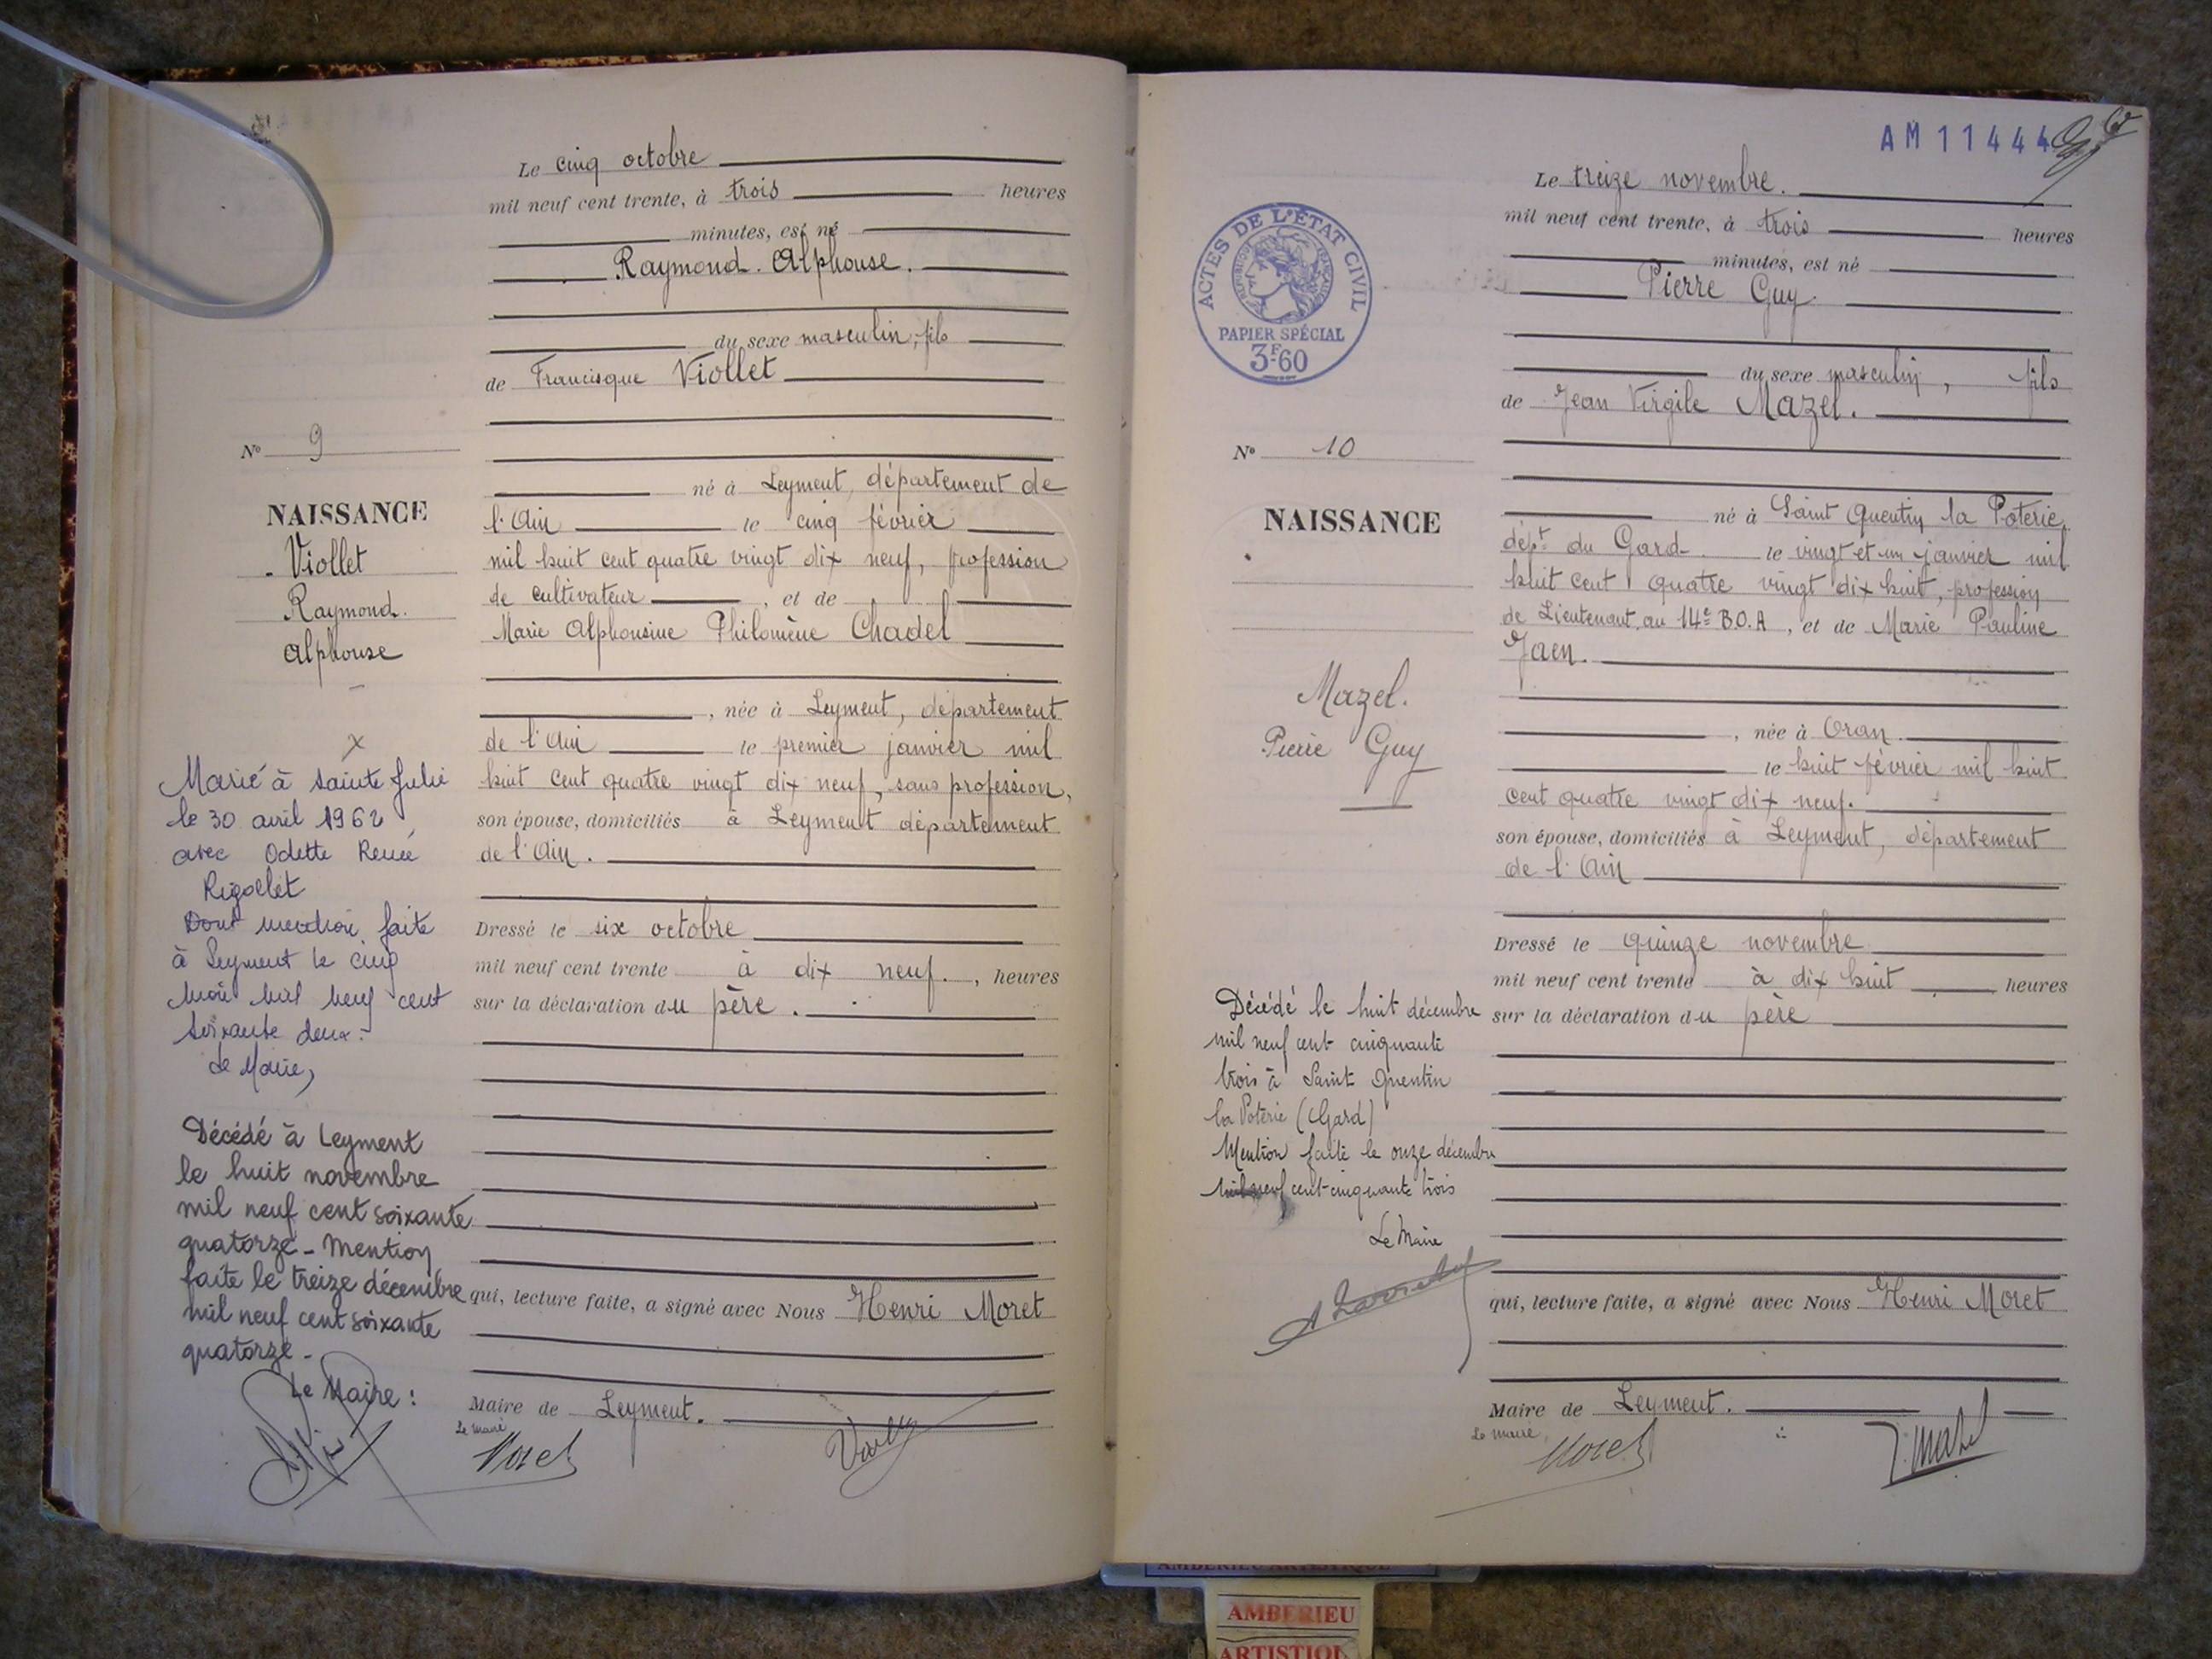 Le cinq octobre
mil neuf cent trente, à trois heures
minutes, est né
Raymond. Alphonse.
du sexe masculin, fils
de Francisque Viollet
né à Leyment, département de
l'Ain le cinq février
mil huit cent quatre vingt dix neuf, profession
de cultivateur, et de
Marie Alphonsine Philomène Chadel
, née à Leyment, département
de l'Ain le premier janvier mil
huit cent quatre vingt dix neuf, sans profession,
son épouse, domiciliés à Leyment département
de l'Ain.
Dressé le six octobre
mil neuf cent trente à dix neuf., heures
sur la déclaration du père.
qui, lecture faite, a signé avec Nous Henri Moret
Maire de Leyment.
Le maire
Moret
No 9
NAISSANCE
Viollet
Raymond.
Alphonse
x
Marié à Sainte Julie
le 30 avril 1962
avec Odette Renée
Rigollet
Dont mention faite
à Leyment le cinq
mai mil neuf cent
soixante deux.
Le Maire,
Décédé à Leyment
le huit novembre
mil neuf cent soixante
quatorze - Mention
faite le treize décembre
mil neuf cent soixante
quatorze -
Le Maire :
AM 11444
Le treize novembre.
mil neuf cent trente, à trois heures
minutes, est né
Pierre Guy.
du sexe masculin, fils
de Jean Virgile Mazel.
né à Saint Quentin la Poterie,
dépt du Gard le vingt et un janvier mil
huit cent quatre vingt dix huit, profession
de Lieutenant au 14e B.O.A, et de Marie Pauline
Jaen.
, née à Oran.
le huit février mil huit
cent quatre vingt dix neuf.
son épouse, domiciliés à Leyment, département
de l'Ain
Dressé le quinze novembre
mil neuf cent trente à dix huit heures
sur la déclaration du père
qui, lecture faite, a signé avec Nous Henri Moret
Maire de Leyment.
Le maire,
Moret
J. Mazel
ACTES DE L'ÉTAT CIVIL
RÉPUBLIQUE FRANÇAISE
PAPIER SPÉCIAL
3F60
No 10
NAISSANCE
Mazel.
Pierre Guy
Décédé le huit décembre
mil neuf cent cinquante
trois à Saint Quentin
la Poterie (Gard)
Mention faite le onze décembre
mil neuf cent cinquante trois
Le Maire
AMBERIEU ARTISTIQUE
AMBERIEU
ARTISTIQU